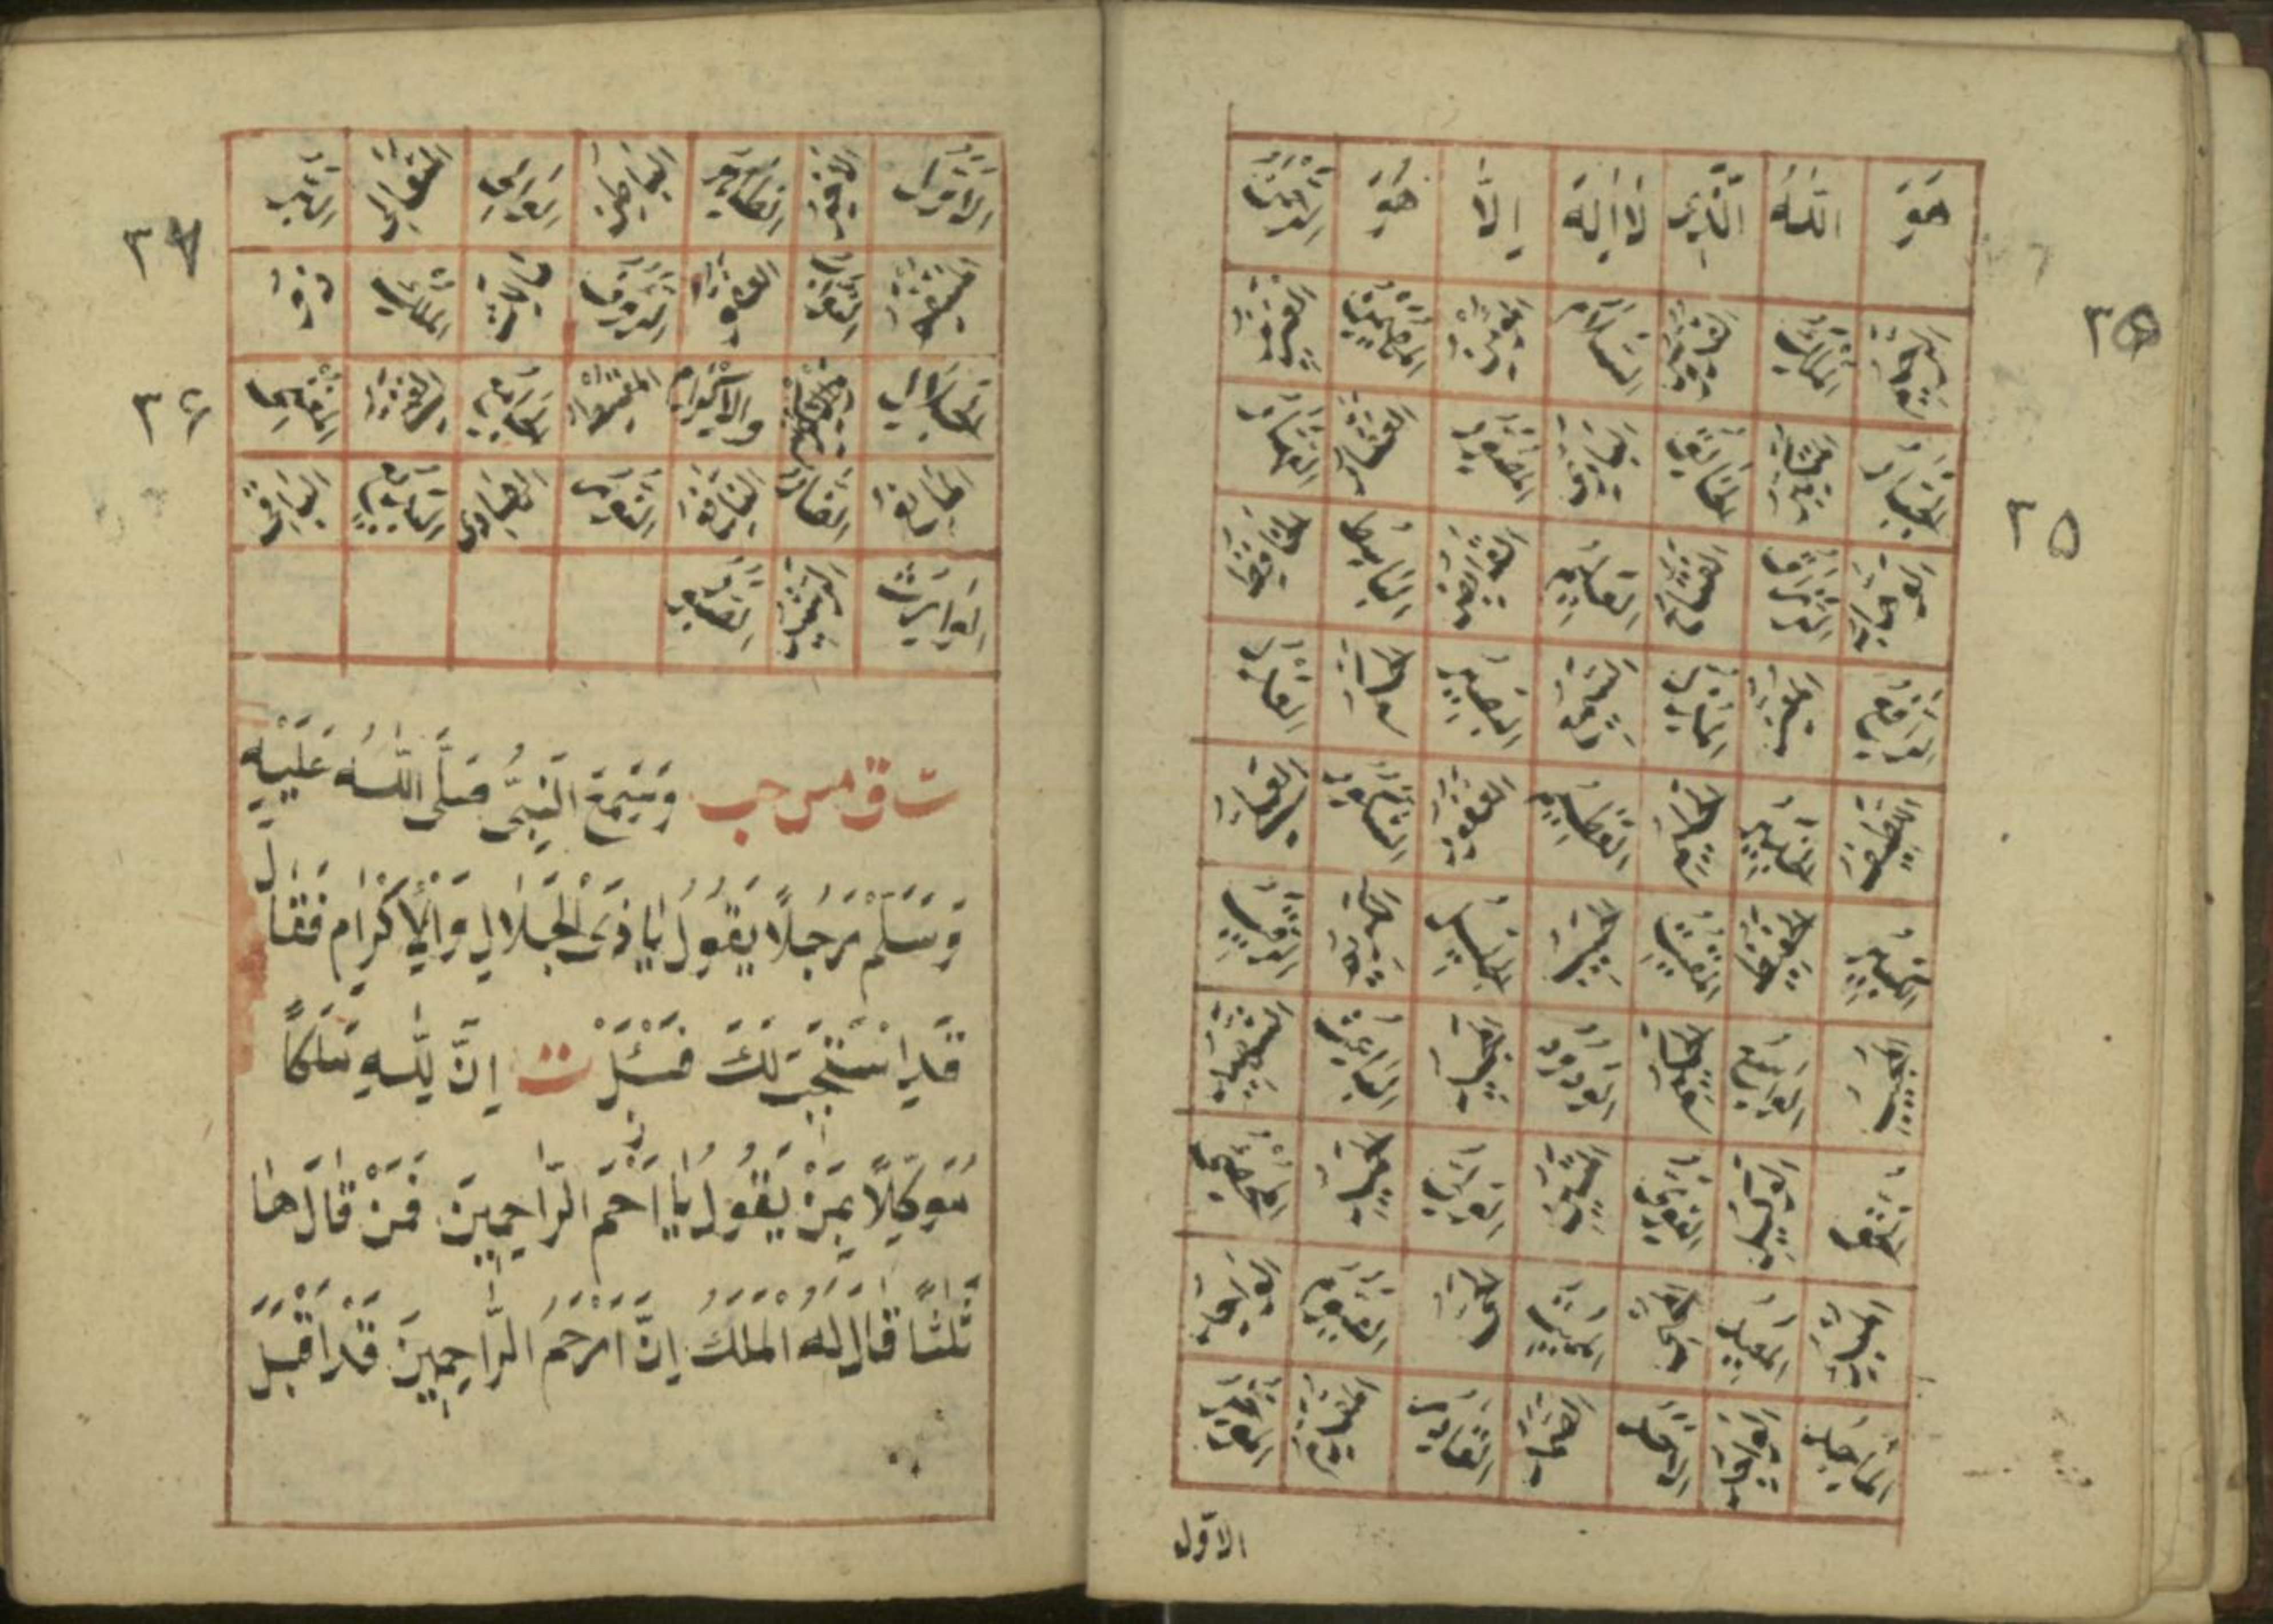 هُوَ اللهُ الَّذِي لَا إِلٰهَ إِلَّا هُوَ الرَّحْمٰنُ
الرَّحِيمُ الْمَلِكُ الْقُدُّوسُ السَّلَامُ الْمُؤْمِنُ الْمُهَيْمِنُ الْعَزِيزُ
الْجَبَّارُ الْمُتَكَبِّرُ الْخَالِقُ الْبَارِئُ الْمُصَوِّرُ الْغَفَّارُ الْقَهَّارُ
الْوَهَّابُ الرَّزَّاقُ الْفَتَّاحُ الْعَلِيمُ الْقَابِضُ الْبَاسِطُ الْخَافِضُ
الرَّافِعُ الْمُعِزُّ الْمُذِلُّ السَّمِيعُ الْبَصِيرُ الْحَكَمُ الْعَدْلُ
اللَّطِيفُ الْخَبِيرُ الْحَلِيمُ الْعَظِيمُ الْغَفُورُ الشَّكُورُ الْعَلِيُّ
الْكَبِيرُ الْحَفِيظُ الْمُقِيتُ الْحَسِيبُ الْجَلِيلُ الْكَرِيمُ الرَّقِيبُ
الْمُجِيبُ الْوَاسِعُ الْحَكِيمُ الْوَدُودُ الْمَجِيدُ الْبَاعِثُ الشَّهِيدُ
الْحَقُّ الْوَكِيلُ الْقَوِيُّ الْمَتِينُ الْوَلِيُّ الْحَمِيدُ الْمُحْصِي
الْمُبْدِئُ الْمُعِيدُ الْمُحْيِي الْمُمِيتُ الْحَيُّ الْقَيُّومُ الْوَاجِدُ
الْمَاجِدُ الْوَاحِدُ الْأَحَدُ الصَّمَدُ الْقَادِرُ الْمُقْتَدِرُ
الاوّل
٢٥
الْأَوَّلُ الْآخِرُ الظَّاهِرُ الْبَاطِنُ الْوَالِي الْمُتَعَالِي الْبَرُّ
الْمُنْتَقِمُ الْعَفُوُّ الرَّؤُفُ مَالِكُ الْمُلْكِ ذُو
الْجَلَالِ وَالْإِكْرَامِ الْمُقْسِطُ الْجَامِعُ الْغَنِيُّ الْمُغْنِي
الْمَانِعُ الضَّارُّ النَّافِعُ النُّورُ الْهَادِي الْبَدِيعُ الْبَاقِي
الْوَارِثُ الرَّشِيدُ الصَّبُورُ
ت ق مس حب وَسَمِعَ النَّبِيُّ صَلَّى اللهُ عَلَيْهِ
وَسَلَّمَ رَجُلًا يَقُولُ يَا ذَى الْجَلَالِ وَالْإِكْرَامِ فَقَالَ
قَدِ اسْتُجِيبَ لَكَ فَسَلْ ت إِنَّ لِلّٰهِ مَلَكًا
مُوَكَّلًا بِمَنْ يَقُولُ يَا أَرْحَمَ الرَّاحِمِينَ فَمَنْ قَالَهَا
ثَلٰثًا قَالَ لَهُ الْمَلَكُ إِنَّ أَرْحَمَ الرَّاحِمِينَ قَدْ أَقْبَلَ